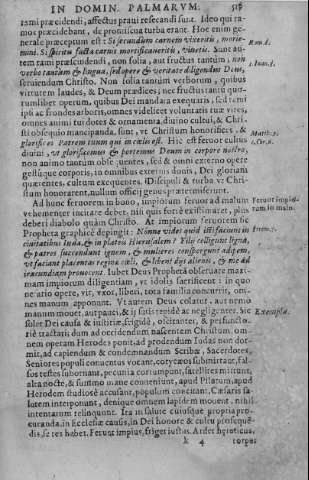 IN DOMIN. PALMARVM.
rami præcidendi, affectus praui resecandi sunt. Ideo qui ra-
mos præcidebant, de promiscua turba erant. Hoc enim ge-
nerale præceptum est: Si secundum carnem vixeritis, morie-
mini. Si spiritu facta carnis mortificaueritis, viuetis. Sunt au-
Rom. 8.
tem rami præscindendi, non folia, aut fructus tantùm, non
verbo tantùm & lingua, sed opere & veritate diligendus Deus,
1. Ioan. 3.
seruiendum Christo. Non folia tantùm verborum, quibus
virtutem laudes, & Deum prædices; nec fructus tantù quo-
rumlibet operum, quibus Dei mandata exequaris, sed rami
ipsi ac frondes arboris, omnes videlicet voluntatis tuæ vires,
omnes animi tui dotes & ornamenta, diuino cultui, & Chri-
sti obsequio mancipanda, sunt, vt Christum honorifices, &
glorifices Patrem tuum qui in cœlis est. Hic est feruor cultus
Matth. 5.
diuini, vt glorificemus & portemus Deum in corpore nostro,
1. Cor. 6.
non animo tantùm obsequentes, sed & omni externo opere
gestúque corporis, in omnibus externis donis, Dei gloriam
quærentes, cultum exequentes. Discipuli & turba vt Chri-
stum honorarent, nullum officij genus prætermiserunt.
Ad hunc feruorem in bono, impiorum feruor ad malum
Feruor impio-
vehementer incitare debet, nisi quis fortè existimaret, plus
rum in malo.
deberi diabolo quàm Christo. At impiorum feruorem sic
Propheta graphicè depingit: Nónne vides quid isti faciunt in
Ierem. 7.
ciuitatibus Iuda, & in plateis Hierusalem? Filij colligunt ligna,
& patres succendunt ignem, & mulieres conspergunt adipem,
vt faciant placentas regina cœli, & libent dijs alienis, & me ad
iracundiam prouocent. Iubet Deus Prophetã obseruare maxi-
mam impiorum diligentiam, vt idolis sacrificent: in quo
nefario opere, vir, vxor, liberi, tota familia concurrit, om-
nes manum apponunt. Vt autem Deus colatur, aut nemo
manum mouet, aut pauci, & ij satis tepidè ac negligenter. Sic
Exempla.
solet Dei causa & iustitiæ, frigidè, oscitanter, & perfuncto-
riè tractari: dum ad occidendum nascentem Christum, om-
nem operam Herodes ponit, ad prodendum Iudas non dor-
mit, ad capiendum & condemnandum Scribæ, Sacerdotes,
Seniores populi conuentus vocant, coryceos submittunt, fal-
sos testes subornant, pecunia corrumpunt, satellites mittunt,
alta nocte, & summo mane conueniunt, apud Pilatum, apud
Herodem studiosè accusant, populum concitant, Cæsaris fa-
lorem interponunt, denique omnem lapidem mouent, nihil
intentarum relinquunt. Ita in salute cuiusque propria pro-
curanda, in Ecclesiæ causis, in Dei honore & cultu prosequẽ-
dis, se res habet. Feruet impius, friget iustus. Ardet hæreticus,
k 4
torpet